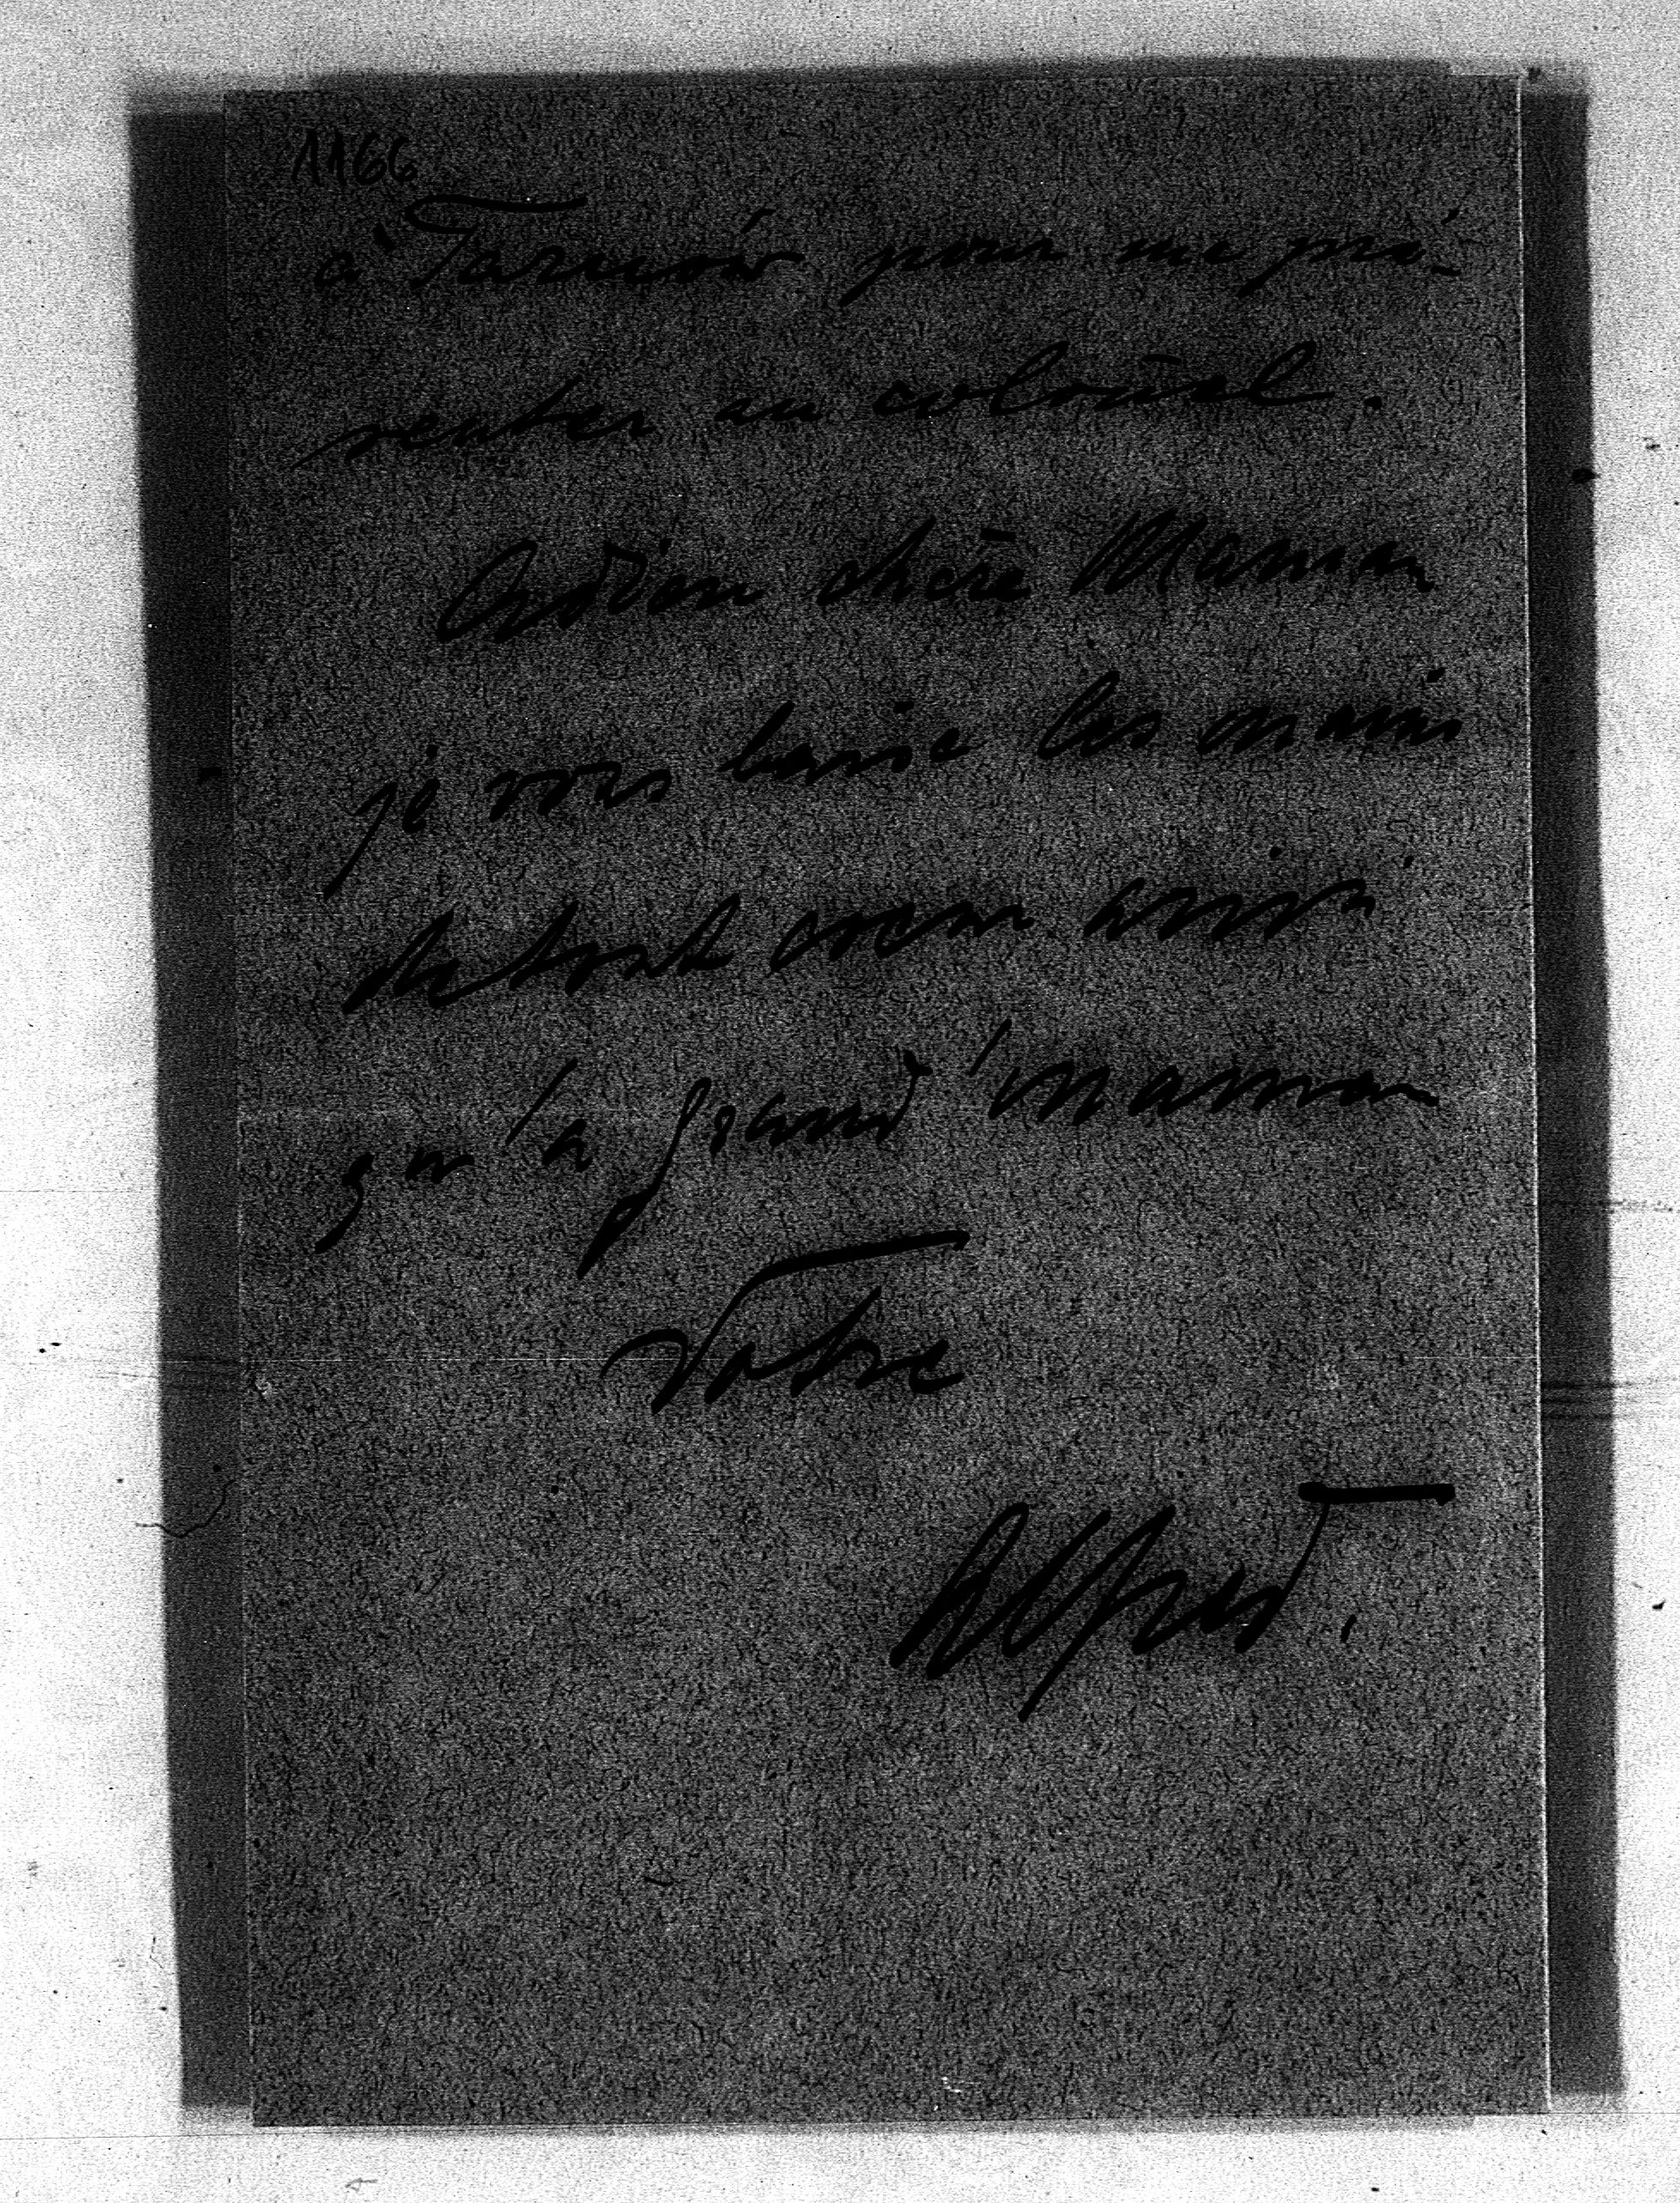 1166
à Tarnów pour me pré-
senter au colonel.
Adieu chère Maman
je vous baise les mains
de tout coeur ainsi
qu'à grand'maman
Votre
Alfred.